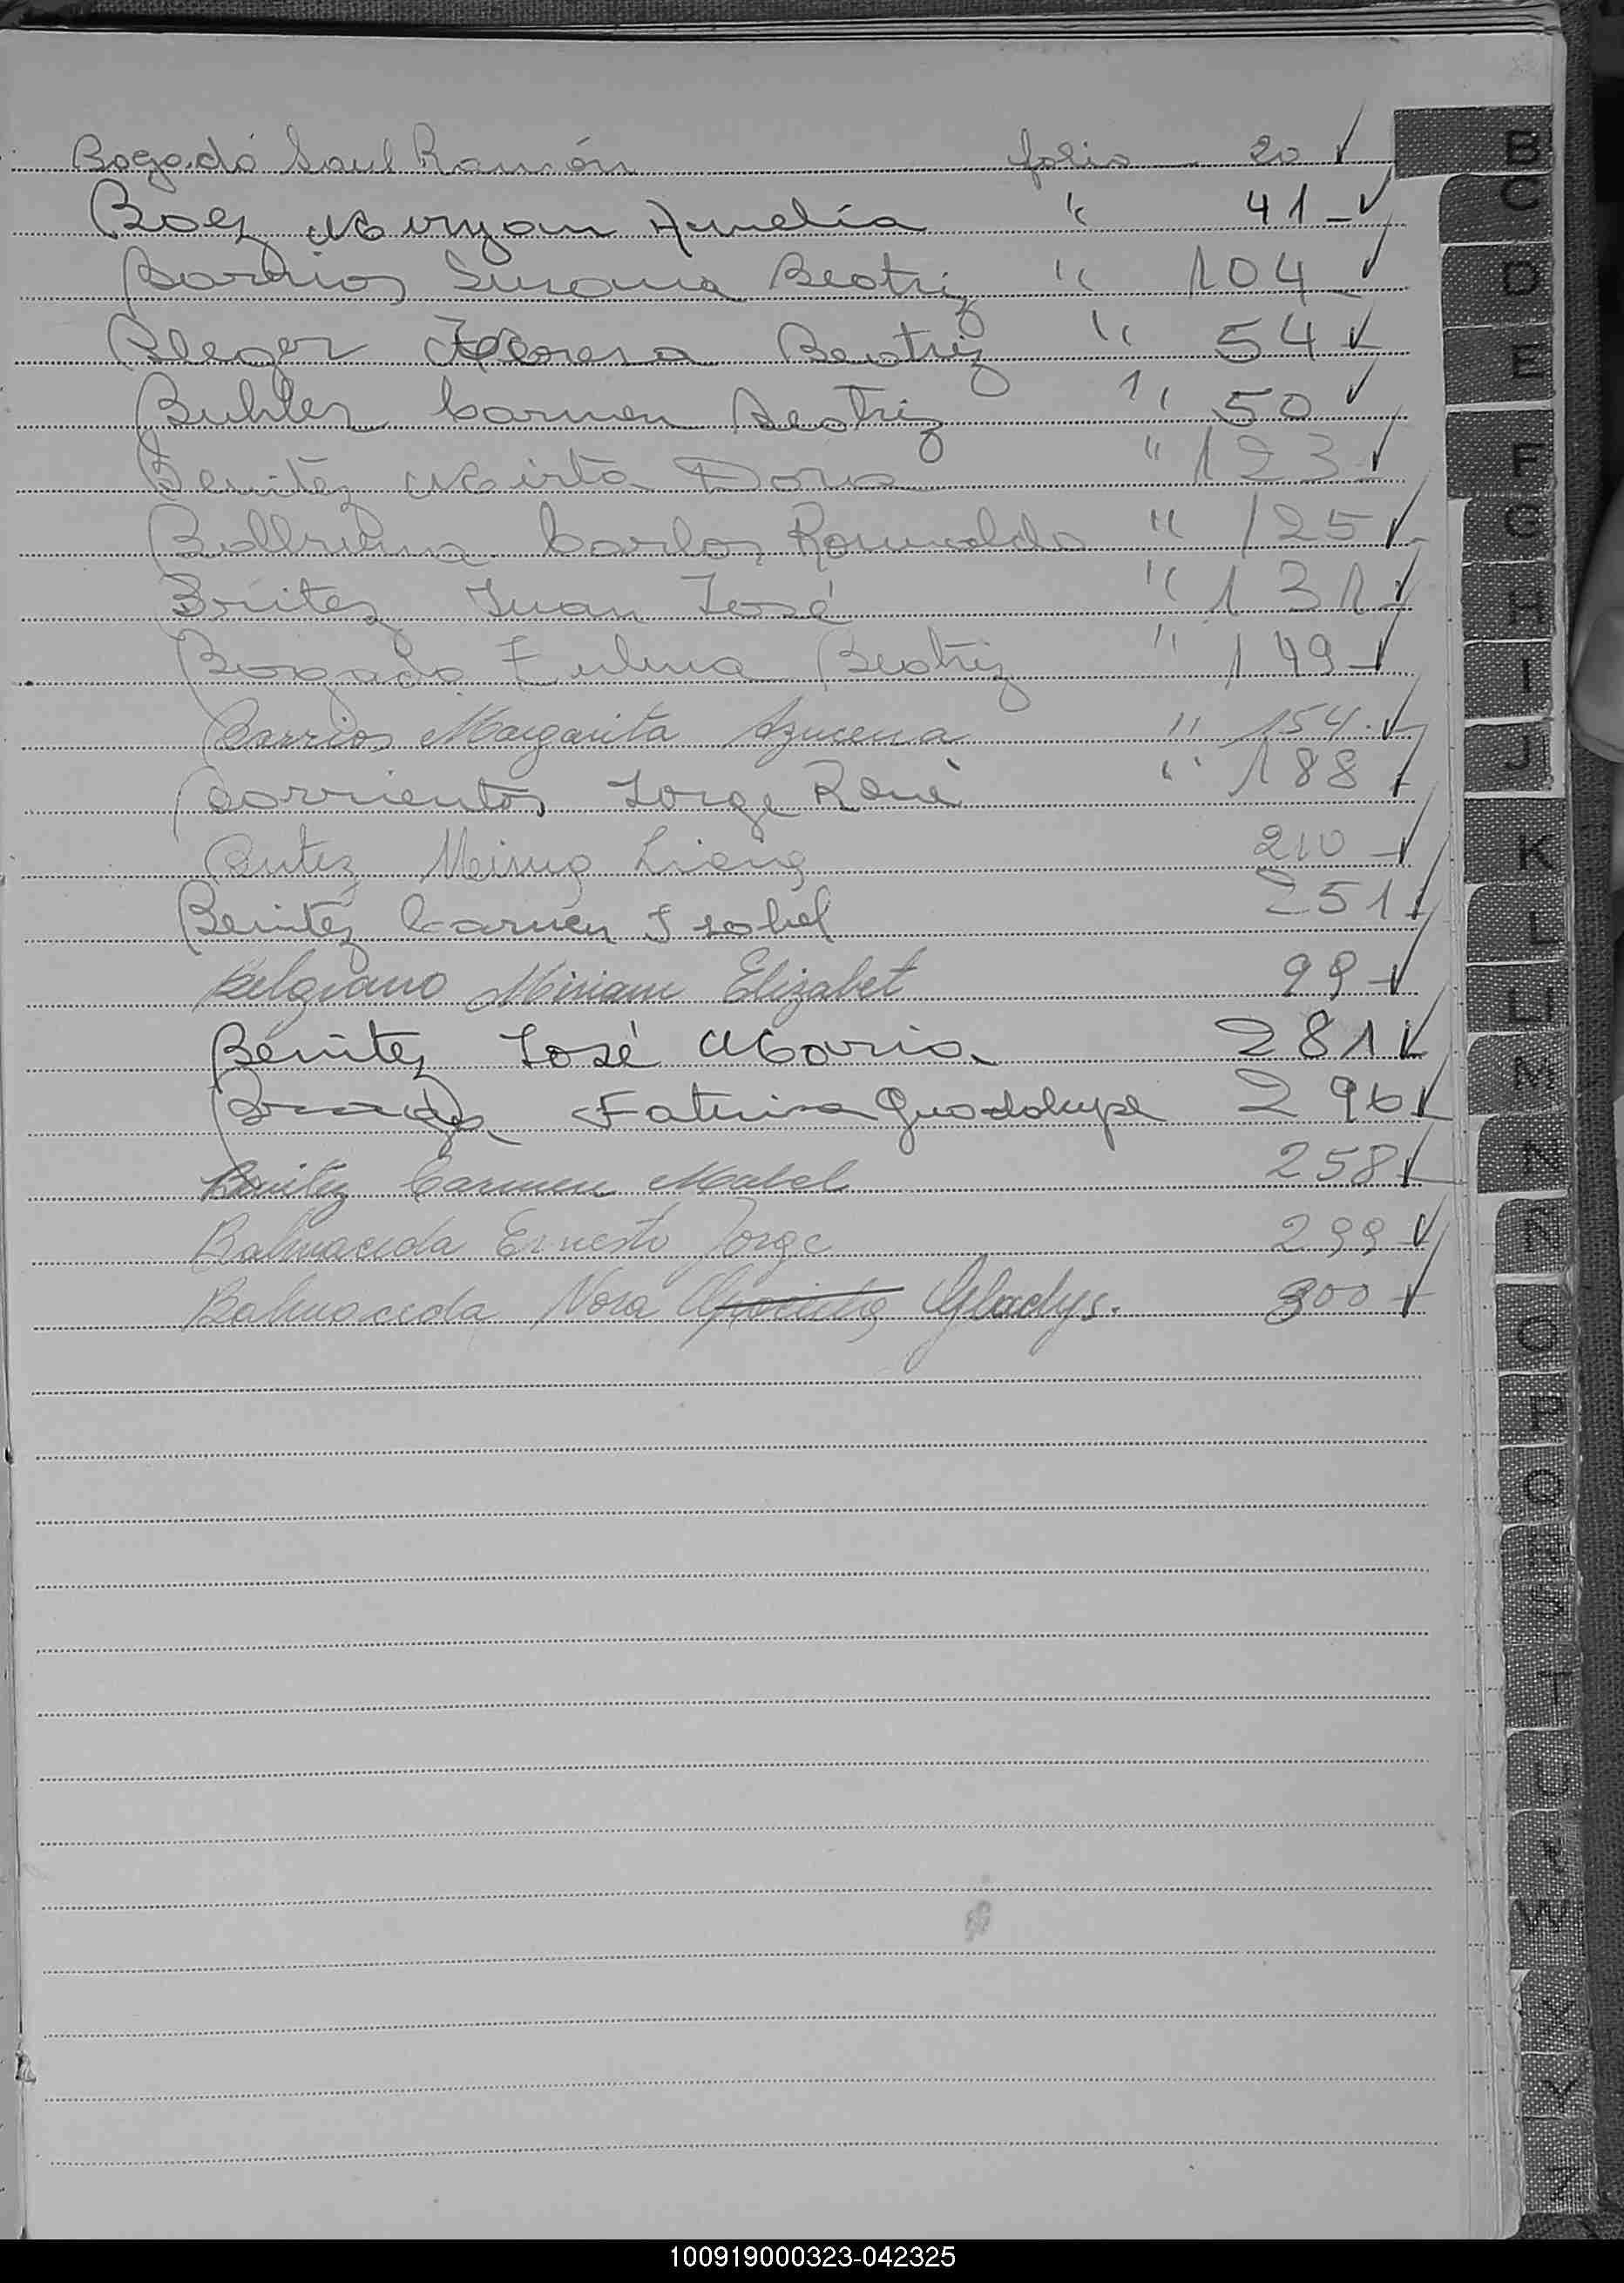 Bogado Saul Ramón folio — 20 ✓
Baez Miryam Amelia " 41 - ✓
Barrios Susana Beatriz " 104 ✓
Bleger Beatriz " 54 ✓
Buhler Carmen Beatriz " 50 ✓
Benitez Mirta Dora " 123 ✓
Carlos Romualdo " 125 ✓
Britez Juan José " 131 ✓
Bogado Zulma Beatriz " 149 ✓
Barrios Margarita Azucena " 154 . ✓
Barrientos Jorge René " 188 ✓
210 - ✓
Benitez Carmen Isabel 251 ✓
Belgrano Miriam Elizabet 99 - ✓
Benitez José Maria 281 ✓
Fatima Guadalupe 296 ✓
Benitez Carmen Mabel 258 ✓
Balmaceda Ernesto Jorge 299 ✓
Balmaceda Nora Gladys. 300 ✓
B
C
D
E
F
G
H
I
J
K
L
LL
M
N
Ñ
O
P
Q
R
S
T
U
V
W
X
Y
Z
100919000323-042325